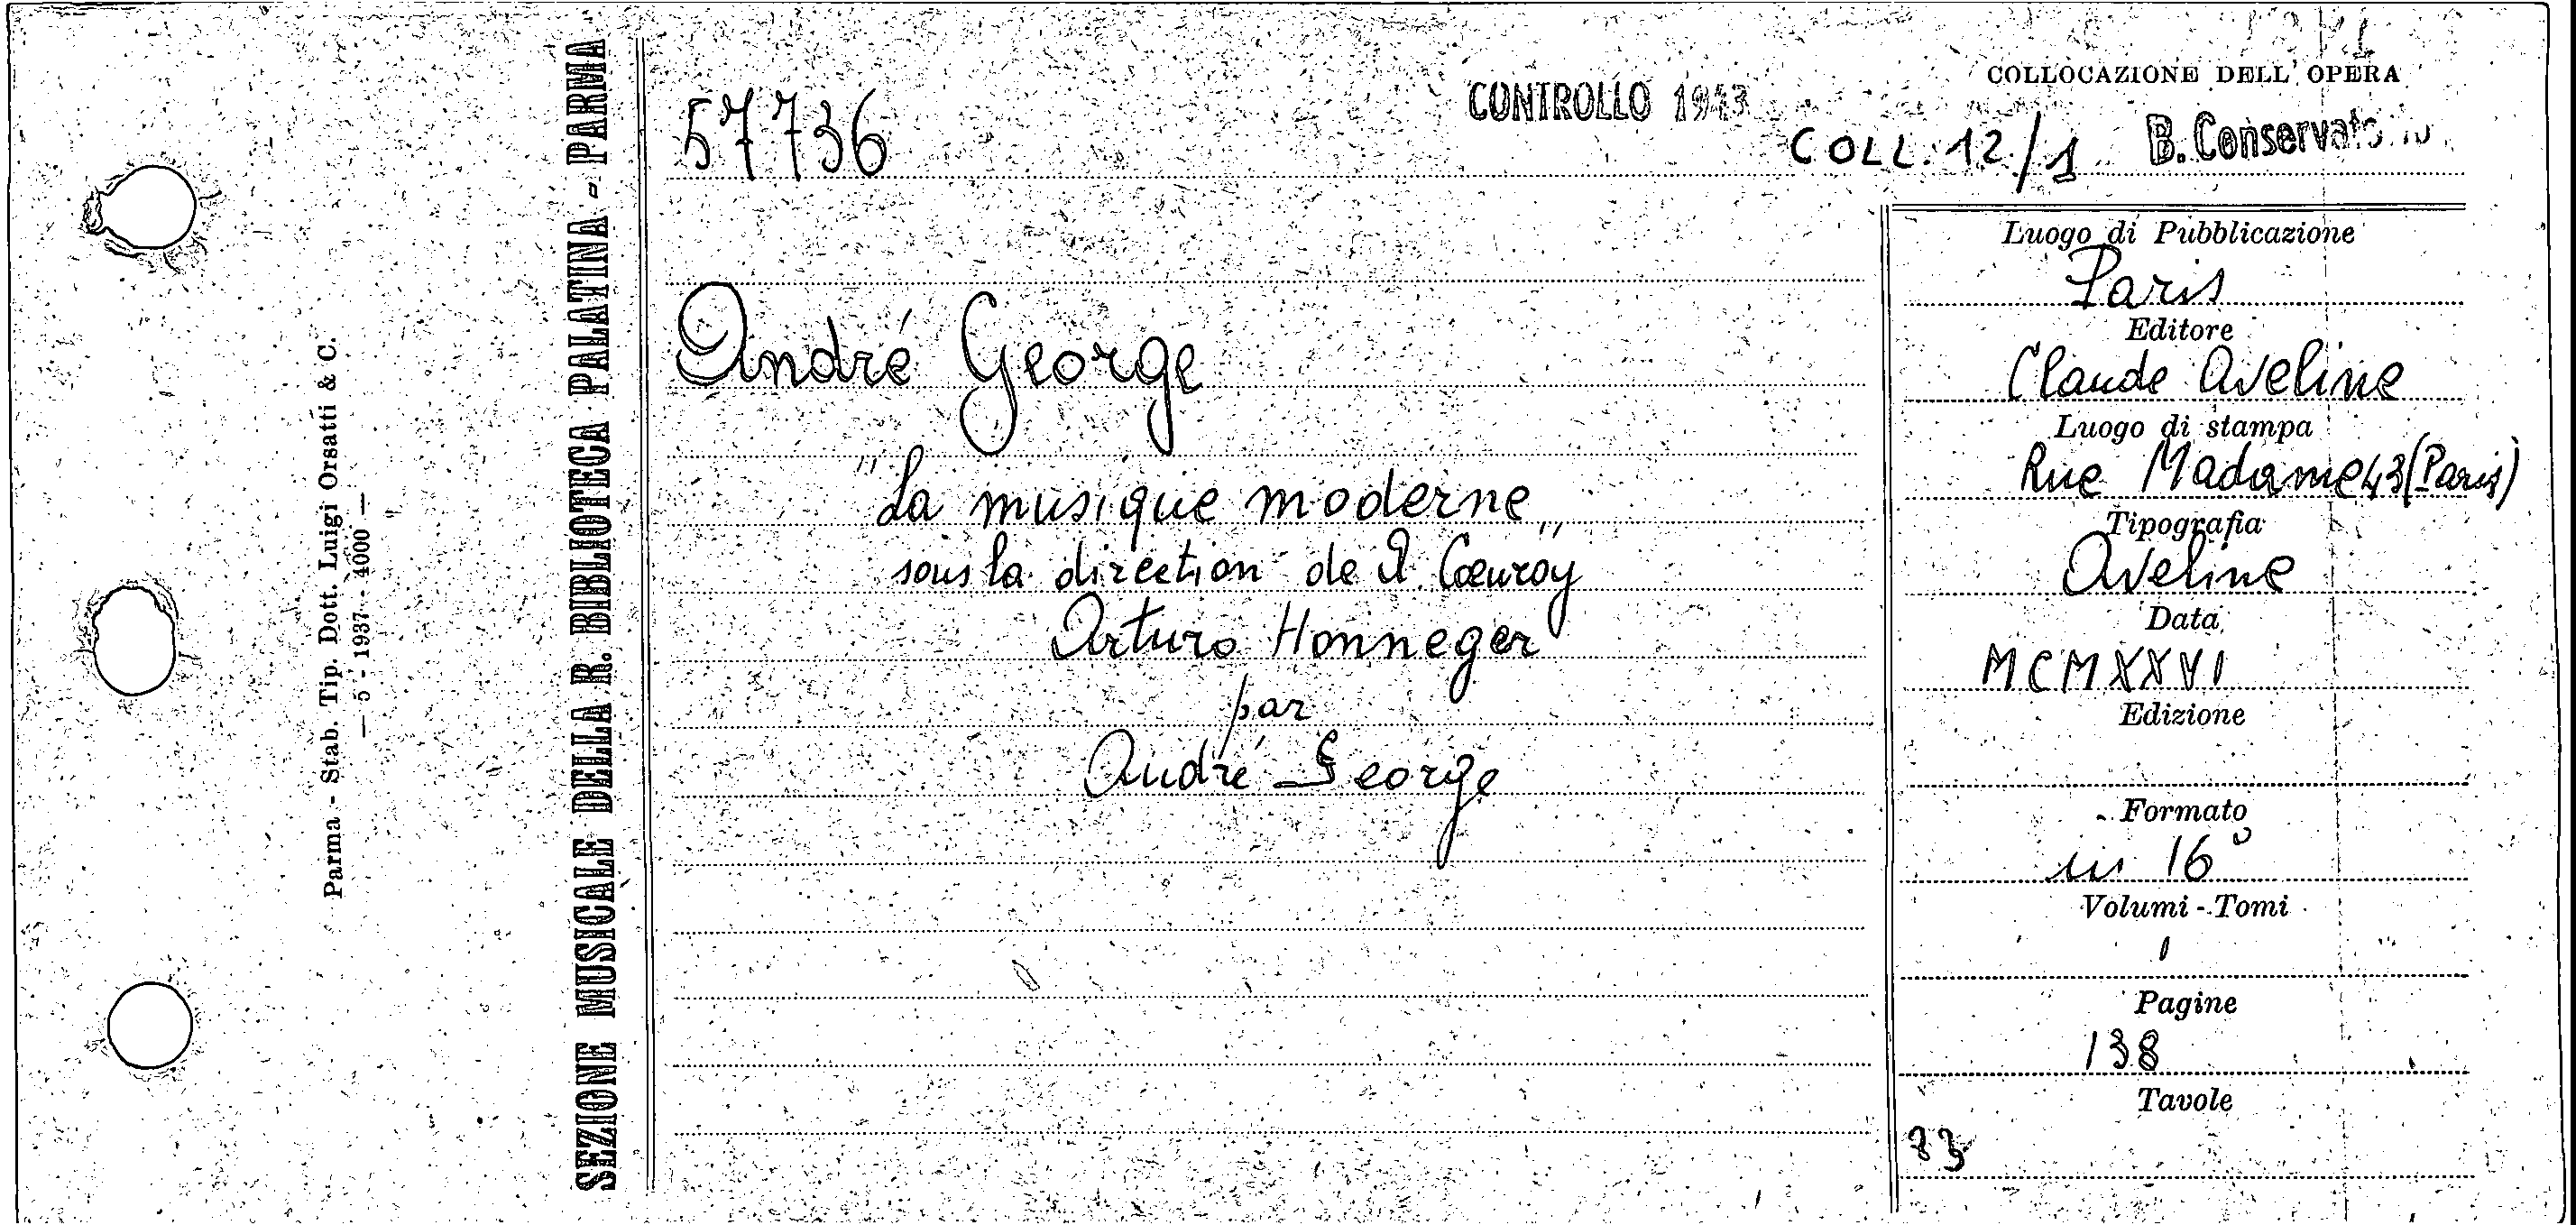 Parma - Stab. Tip. Dott. Luigi Orsatti & C.
— 5 - 1937 - 4000 —
SEZIONE MUSICALE DELLA R. BIBLIOTECA PALATINA - PARMA
57736
CONTROLLO 1943
COLLOCAZIONE DELL' OPERA
COLL. 12/1 B. Conservatorio
André George
"La musique moderne"
sous la direction de A. Cœuroy
Arturo Honneger
par
André George
Luogo di Pubblicazione
Paris
Editore
Claude Aveline
Luogo di stampa
Rue Madame 43 (Paris)
Tipografia
Aveline
Data
MCMXXVI
Edizione
Formato
in 16°
Volumi - Tomi
1
Pagine
138
Tavole
83